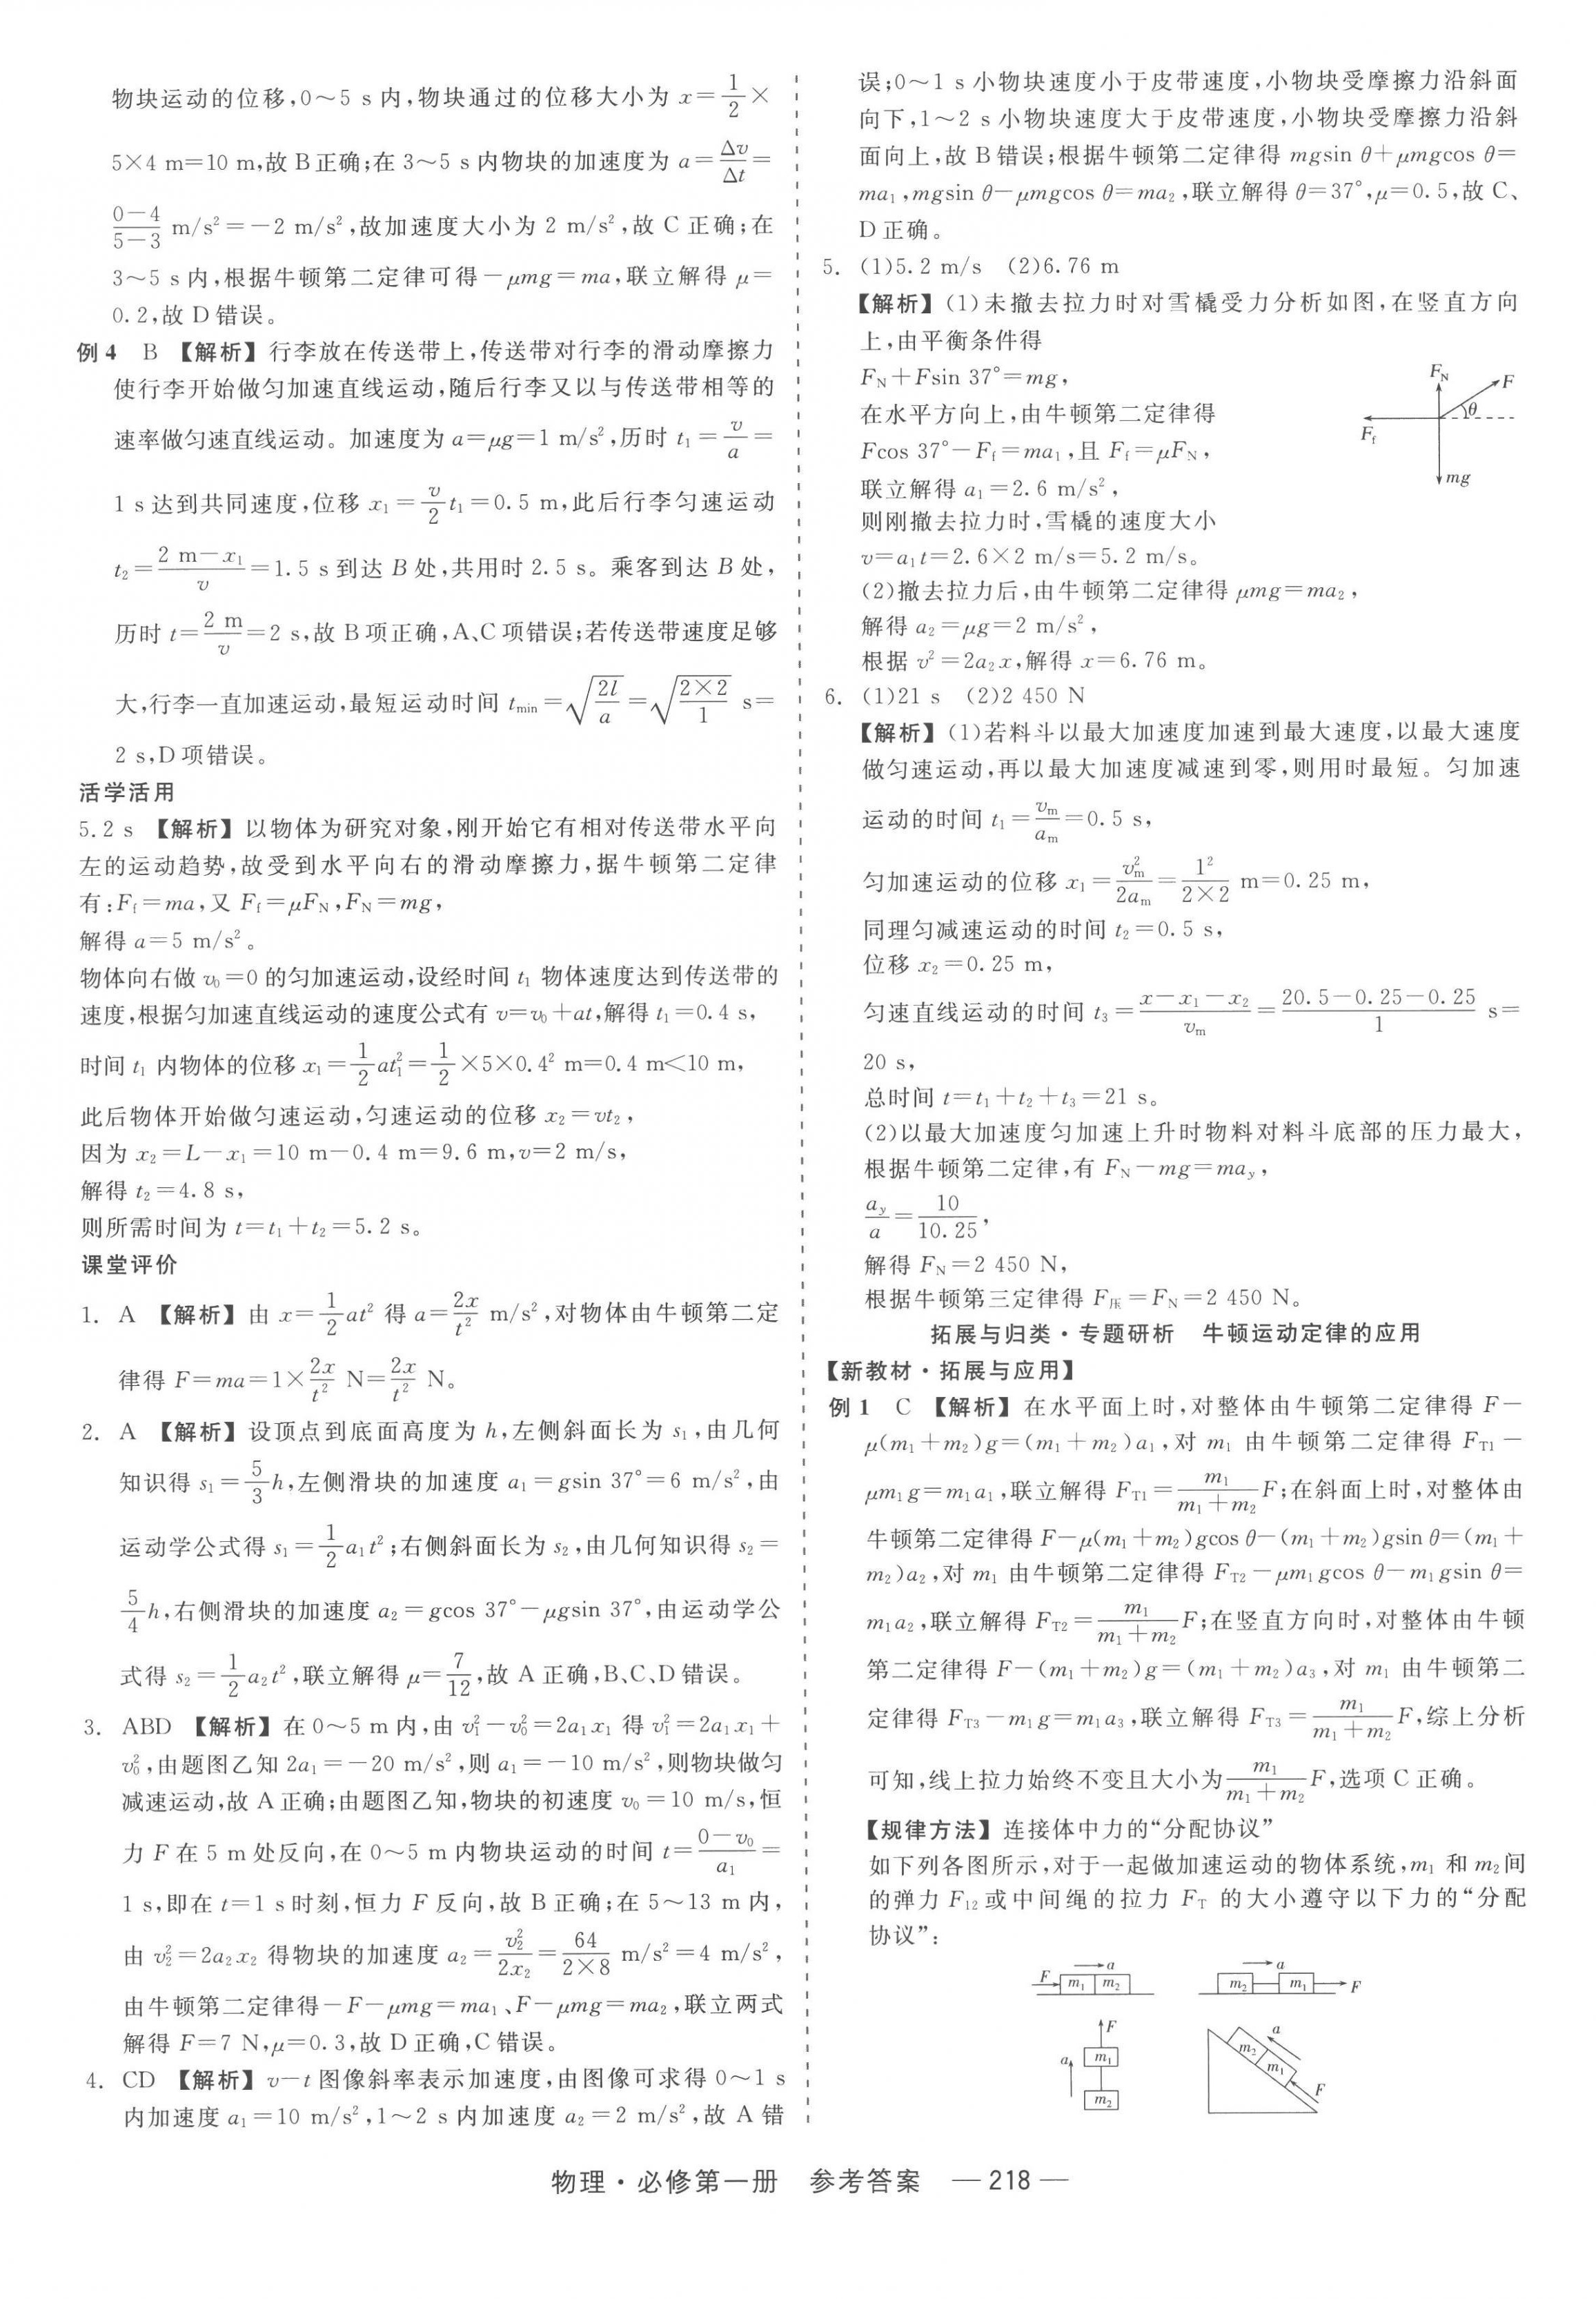 物块运动的位移,0～5 s内,物块通过的位移大小为 x=1/2×
5×4 m=10 m,故B正确;在3～5 s内物块的加速度为 a=Δv/Δt=
(0-4)/(5-3) m/s²=-2 m/s²,故加速度大小为2 m/s²,故C正确;在
3～5 s内,根据牛顿第二定律可得-μmg=ma,联立解得 μ=
0.2,故D错误。
例4 B 【解析】行李放在传送带上,传送带对行李的滑动摩擦力
使行李开始做匀加速直线运动,随后行李又以与传送带相等的
速率做匀速直线运动。加速度为 a=μg=1 m/s²,历时 t₁=v/a=
1 s达到共同速度,位移 x₁=v/2 t₁=0.5 m,此后行李匀速运动
t₂=(2 m-x₁)/v=1.5 s到达B处,共用时2.5 s。乘客到达B处,
历时 t=2 m/v=2 s,故B项正确,A、C项错误;若传送带速度足够
大,行李一直加速运动,最短运动时间 t_min=√(2l/a)=√(2×2/1) s=
2 s,D项错误。
活学活用
5.2 s 【解析】以物体为研究对象,刚开始它有相对传送带水平向
左的运动趋势,故受到水平向右的滑动摩擦力,据牛顿第二定律
有:F_f=ma,又 F_f=μF_N,F_N=mg,
解得 a=5 m/s²。
物体向右做 v₀=0的匀加速运动,设经时间 t₁ 物体速度达到传送带的
速度,根据匀加速直线运动的速度公式有 v=v₀+at,解得 t₁=0.4 s,
时间 t₁ 内物体的位移 x₁=1/2 at₁²=1/2×5×0.4² m=0.4 m<10 m,
此后物体开始做匀速运动,匀速运动的位移 x₂=vt₂,
因为 x₂=L-x₁=10 m-0.4 m=9.6 m,v=2 m/s,
解得 t₂=4.8 s,
则所需时间为 t=t₁+t₂=5.2 s。
课堂评价
1. A 【解析】由 x=1/2 at² 得 a=2x/t² m/s²,对物体由牛顿第二定
律得 F=ma=1×2x/t² N=2x/t² N。
2. A 【解析】设顶点到底面高度为 h,左侧斜面长为 s₁,由几何
知识得 s₁=5/3 h,左侧滑块的加速度 a₁=gsin 37°=6 m/s²,由
运动学公式得 s₁=1/2 a₁t²;右侧斜面长为 s₂,由几何知识得 s₂=
5/4 h,右侧滑块的加速度 a₂=gcos 37°-μgsin 37°,由运动学公
式得 s₂=1/2 a₂t²,联立解得 μ=7/12,故A正确,B、C、D错误。
3. ABD 【解析】在0～5 m内,由 v₁²-v₀²=2a₁x₁ 得 v₁²=2a₁x₁+
v₀²,由题图乙知2a₁=-20 m/s²,则 a₁=-10 m/s²,则物块做匀
减速运动,故A正确;由题图乙知,物块的初速度 v₀=10 m/s,恒
力 F 在5 m处反向,在0～5 m内物块运动的时间 t=(0-v₀)/a₁=
1 s,即在 t=1 s时刻,恒力 F 反向,故B正确;在5～13 m内,
由 v₂²=2a₂x₂ 得物块的加速度 a₂=v₂²/2x₂=64/(2×8) m/s²=4 m/s²,
由牛顿第二定律得-F-μmg=ma₁、F-μmg=ma₂,联立两式
解得 F=7 N,μ=0.3,故D正确,C错误。
4. CD 【解析】v-t图像斜率表示加速度,由图像可求得0～1 s
内加速度 a₁=10 m/s²,1～2 s内加速度 a₂=2 m/s²,故A错
误;0～1 s小物块速度小于皮带速度,小物块受摩擦力沿斜面
向下,1～2 s小物块速度大于皮带速度,小物块受摩擦力沿斜
面向上,故B错误;根据牛顿第二定律得 mgsin θ+μmgcos θ=
ma₁,mgsin θ-μmgcos θ=ma₂,联立解得 θ=37°,μ=0.5,故C、
D正确。
5. (1)5.2 m/s (2)6.76 m
【解析】(1)未撤去拉力时对雪橇受力分析如图,在竖直方向
上,由平衡条件得
F_N+Fsin 37°=mg,
在水平方向上,由牛顿第二定律得
Fcos 37°-F_f=ma₁,且 F_f=μF_N,
联立解得 a₁=2.6 m/s²,
则刚撤去拉力时,雪橇的速度大小
v=a₁t=2.6×2 m/s=5.2 m/s。
F_N F θ F_f mg
(2)撤去拉力后,由牛顿第二定律得 μmg=ma₂,
解得 a₂=μg=2 m/s²,
根据 v²=2a₂x,解得 x=6.76 m。
6. (1)21 s (2)2 450 N
【解析】(1)若料斗以最大加速度加速到最大速度,以最大速度
做匀速运动,再以最大加速度减速到零,则用时最短。匀加速
运动的时间 t₁=v_m/a_m=0.5 s,
匀加速运动的位移 x₁=v_m²/2a_m=1²/(2×2) m=0.25 m,
同理匀减速运动的时间 t₂=0.5 s,
位移 x₂=0.25 m,
匀速直线运动的时间 t₃=(x-x₁-x₂)/v_m=(20.5-0.25-0.25)/1 s=
20 s,
总时间 t=t₁+t₂+t₃=21 s。
(2)以最大加速度匀加速上升时物料对料斗底部的压力最大,
根据牛顿第二定律,有 F_N-mg=ma_y,
a_y/a=10/10.25,
解得 F_N=2 450 N,
根据牛顿第三定律得 F_压=F_N=2 450 N。
拓展与归类·专题研析 牛顿运动定律的应用
【新教材·拓展与应用】
例1 C 【解析】在水平面上时,对整体由牛顿第二定律得 F-
μ(m₁+m₂)g=(m₁+m₂)a₁,对 m₁ 由牛顿第二定律得 F_T1-
μm₁g=m₁a₁,联立解得 F_T1=m₁/(m₁+m₂) F;在斜面上时,对整体由
牛顿第二定律得 F-μ(m₁+m₂)gcos θ-(m₁+m₂)gsin θ=(m₁+
m₂)a₂,对 m₁ 由牛顿第二定律得 F_T2-μm₁gcos θ-m₁gsin θ=
m₁a₂,联立解得 F_T2=m₁/(m₁+m₂) F;在竖直方向时,对整体由牛顿
第二定律得 F-(m₁+m₂)g=(m₁+m₂)a₃,对 m₁ 由牛顿第二
定律得 F_T3-m₁g=m₁a₃,联立解得 F_T3=m₁/(m₁+m₂) F,综上分析
可知,线上拉力始终不变且大小为 m₁/(m₁+m₂) F,选项C正确。
【规律方法】连接体中力的“分配协议”
如下列各图所示,对于一起做加速运动的物体系统,m₁ 和 m₂间
的弹力 F₁₂ 或中间绳的拉力 F_T 的大小遵守以下力的“分配
协议”:
F m₁ m₂ a
m₂ m₁ a F
F a m₁ m₂
a m₂ m₁ F
物理·必修第一册 参考答案 —218—